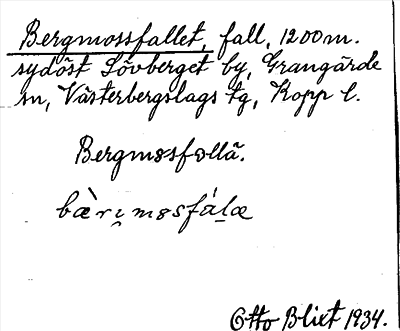 Bergmossfallet, fall, 1200 m.
sydöst Lövberget by, Grangärde
sn, Västerbergslags tg, Kopp l.
Bergmosfollä.
bæ̀ri̯mɷsfáḷæ
Otto Blixt 1934.